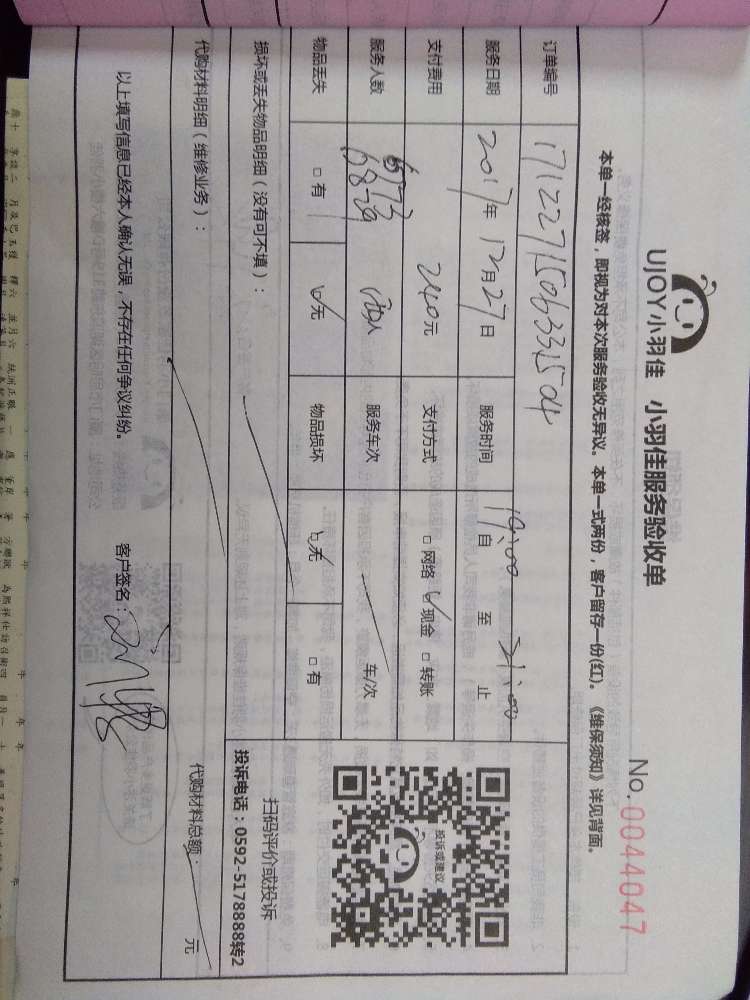 UJOY小羽佳 小羽佳服务验收单
No. 0044047
本单一经核签，即视为对本次服务验收无异议。本单一式两份，客户留存一份(红)。《维保须知》详见背面。
订单编号 1712271506331504
服务日期 2017年 12月27日 服务时间 19:00 自 至 21:00 止
支付费用 240元 支付方式 □ 网络 ☑ 现金 □ 转账
服务人数 6873 6829 车/次 服务车次
物品丢失 □ 有 ☑ 无 物品损坏 ☑ 无 □ 有
损坏或丢失物品明细（没有可不填）：
代购材料明细（维修业务）：
代购材料总额： 元
以上填写信息已经本人确认无误，不存在任何争议纠纷。 客户签名：
投诉或建议
扫码评价或投诉
投诉电话：0592-5178888转2